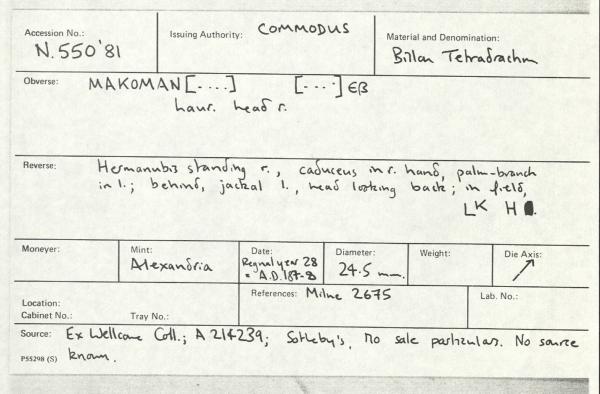 Accession No.: N.550'81
Issuing Authority: COMMODUS
Material and Denomination: Billon Tetradrachm
Obverse: MAKOMAN[....] [....]ЄB
laur. head r.
Reverse: Hermanubis standing r., caduceus in r. hand, palm-branch
in l.; behind, jackal l., head looking back; in field,
LK H
Moneyer:
Mint: Alexandria
Date: Regnal year 28
= A.D. 187-8
Diameter: 24.5 mm.
Weight:
Die Axis: ↗
Location:
Cabinet No.: Tray No.:
References: Milne 2675
Lab. No.:
Source: Ex Wellcome Coll.; A 214239; Sotheby's, no sale particulars. No source
P55298 (S) known.